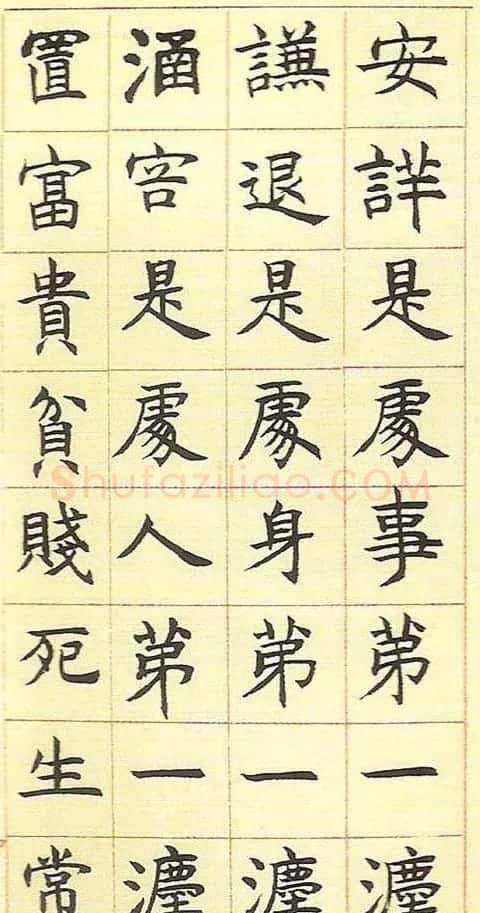 安詳是處事苐一灋
謙退是處身苐一灋
涵容是處人苐一灋
置富貴貧賤死生常
Shufaziliao.COM